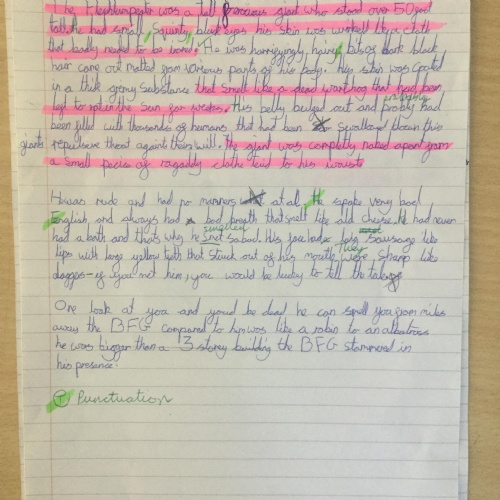 The Fleshlumpeater was a tall ferocious giant who stood over 50 foot
tall. he had small, Squinty, black eyes his skin was like a cloth
that badly needed to be He was horrifyingly hairy, bits of dark black
hair came out matted from various parts of his body. His skin was coated
in a thick grimy substance that smelt like a dead warthog that had been
left to rot in the sun for weeks. His belly bulged out and probably had
been filled with thousands of humans that had been swallowed down this
giants repulseve throat againts their will. The giant was completly naked apart from
a small peice of raggady clothe tied to his waiste
He was rude and had no manners at all. He spoke very bad
English, and always had bad breath that smelt like old cheese. he had never
had a bath and thats why he smelled so bad. His face had Sausage like
lips with large yellow teeth that stuck out of his mouth, they were sharp like
daggers - if you met him, you would be lucky to tell the tale
One look at you and youd be dead he can smell you from miles
away the BFG compared to him was like a robin to an albatross
he was bigger than a 3 storey building the BFG stammered in
his presence.
Punctuation